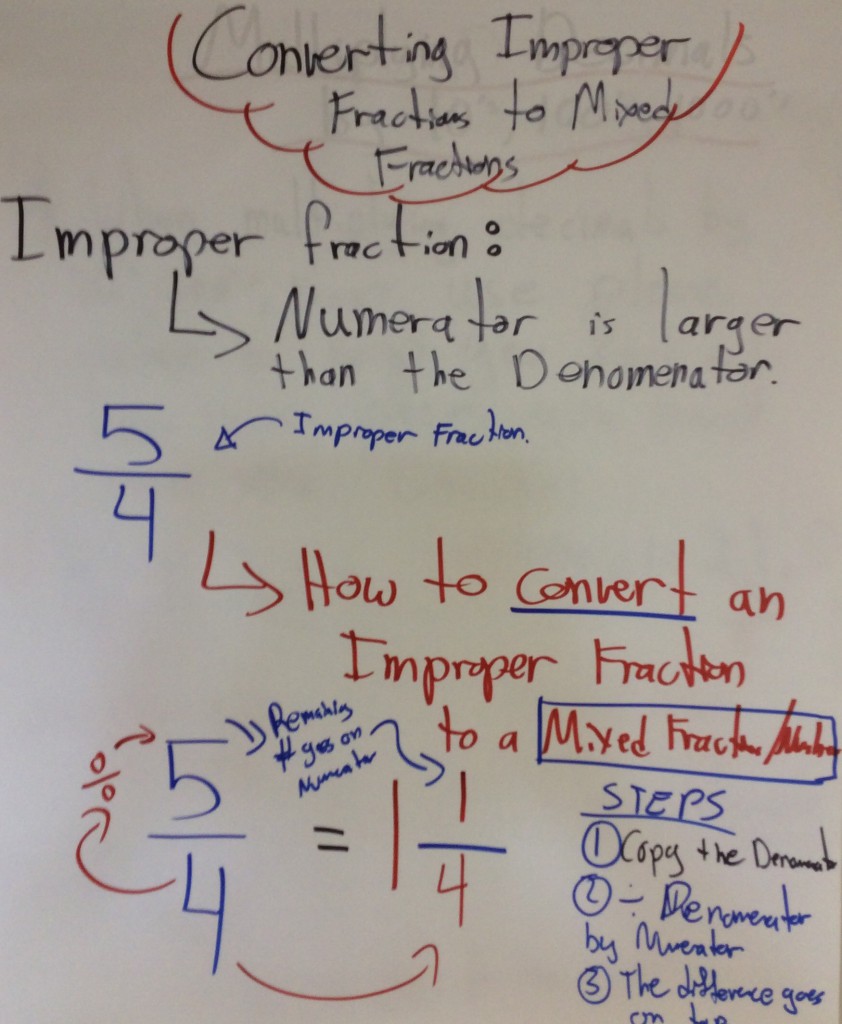 Converting Improper
Fractions to Mixed
Fractions
Improper fraction:
Numerator is larger
than the Denomenator.
5
4
Improper Fraction.
How to convert an
Improper Fraction
to a Mixed Fraction/Number
Remaining
# goes on
Numerator
÷
5
4
=
1 1
4
STEPS
① Copy the Denomenator
② ÷ Denomenator
by Numerator
③ The difference goes
on top